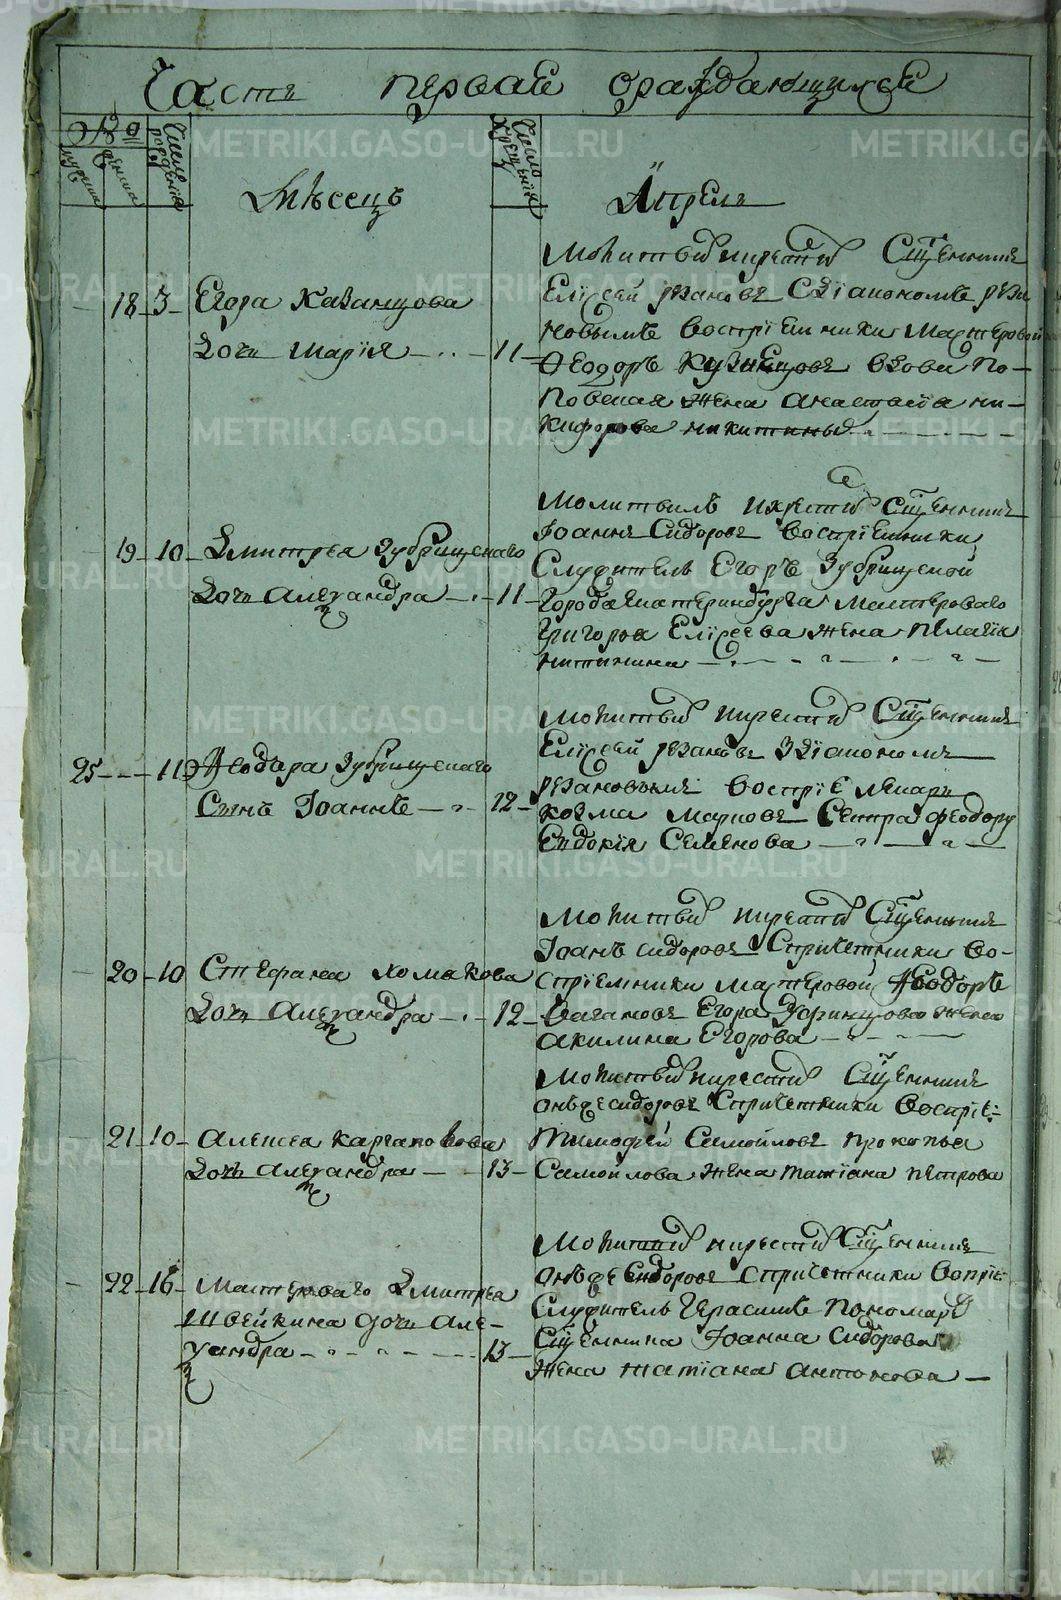 Часть первая ораждающихсе
№
мужска
женска
Число
рождения
Число
Крещения
Мѣсецъ
Апрель
18 3 Егора Казанцова
Дочь Мария 11
Молитвил икрестил Сщенникъ
Елисей рязановъ Сдїакономъ ряза
новымъ восприемники Мастеровой
Феодоръ Кузнецовъ вдова По-
повская жена анастасїа ни-
кифорова никитины
19 10 Дмитрея Зубрицскаго
Дочь Александра 11
Молитвилъ икрестил Сщенникъ
Іоаннъ Сидоровъ восприемники
Служитель Егоръ Зубрицской
города екатеринбурга мастероваго
Григорья Елисеева жена Пелагїя
никитина
25 11 Феодора Зубрицскаго
Сынъ Іоаннъ 12
Молитвил икрестил Сщенникъ
Елисей рязановъ здїакономъ
рязановымъ восприе лекарь
козма Марковъ Сестра Феодору
Евдокїя Семенова
20 10 Стефана хомякова
Дочь Александра 12
Молитвил икрестил Сщенникъ
Іоанъ сидоровъ Спричетники во-
сприемники мастеровой Феодоръ
Егора жена
акилина Егорова
21 10 алексея
Дочь Александра 13
Молитвил икрестил Сщенникъ
онъже сидоровъ Спричетники восприе:
Тимофей Самойловъ прокопья
Самойлова жена татїана петрова
22 16 Мастероваго Дмитрея
Швейкина дочь але-
ѯандра 13
Молитвил икрестил Сщенникъ
онъже Сидоровъ Спричетники воприе
Служитель Герасимъ Пономаре
Сщенника Іоанна Сидорова
жена татїана антонова
METRIKI.GASO-URAL.RU